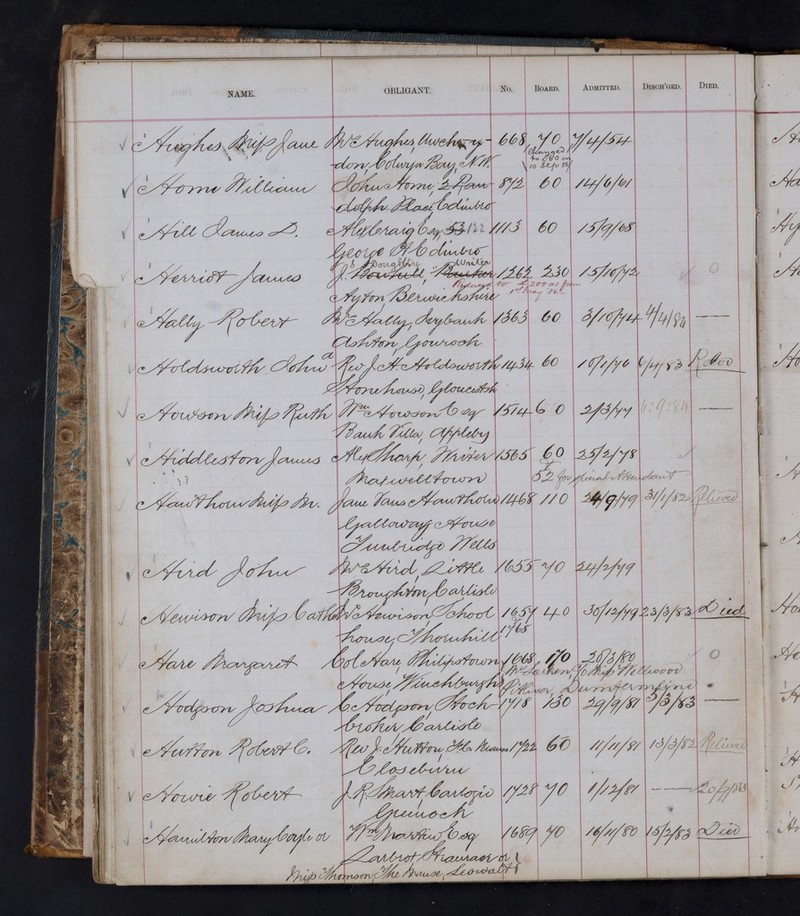 NAME. OBLIGANT. No. BOARD. ADMITTED. DISCH'GED. DIED.
Hughes, Miss Jane Mrs Hughes, 668 70 7/4/54
Colwyn Bay, N.W. Changed to £60 on 10 Sep
Home William John Home 2 Ran- 872 60 14/6/61
dolph Place Edinbro
Hill James D. Alex Craig Esq 1113 60 15/9/68
George St Edinbro
Doughty Writer
Herriot James J. 1262 230 15/10/72
Reduced to £200 as from 1st May
Ayton Berwickshire
Hally Robert Mrs Hally, Ivybank 1363 60 3/10/74 4/4/84
Ashton, Gourock
Holdsworth John Rev J. H. Holdsworth 1434 60 10/1/76 6/4/83
Stonehouse, Gloucestsh
Howson Miss Ruth Wm Howson Esq 1514 60 2/3/77 6:9:84
Bank Villa, Appleby
Hiddleston James Alex Sharp, Writer 1565 60 25/2/78
Maxwelltown 52 for special Attendant
Hawthorn Miss M. Jane Vans Hawthorn 1468 110 24/9/79 31/1/82 Relieved
Galloway House
Tunbridge Wells
Hird John Mrs Hird, Little 1655 70 24/2/79
Broughton, Carlisle
Hewison Miss Cath Mrs Hewison School 1657 40 30/12/79 23/3/83 Died
house, Thornhill 1765
Hare Margaret Col Hare, Philipstown 1668 170 28/3/80
House, Winchburgh Miss Wellwood
Pitliver, Dunfermline
Hodgson Joshua C Hodgson, Stock 1718 130 29/9/81 3/3/83
broker Carlisle
Hutton Robert C. Rev J. Hutton, 1722 60 11/11/81 13/3/82 Relieved
Closeburn
Howie Robert J. R. Smart 1728 70 1/12/81
Greenock
Hamilton Mary Coyle or Wm Martin Esq 1689 70 16/11/80 15/2/83 Died
Stranraer or
Miss Thomson, The Manse, Leswalt